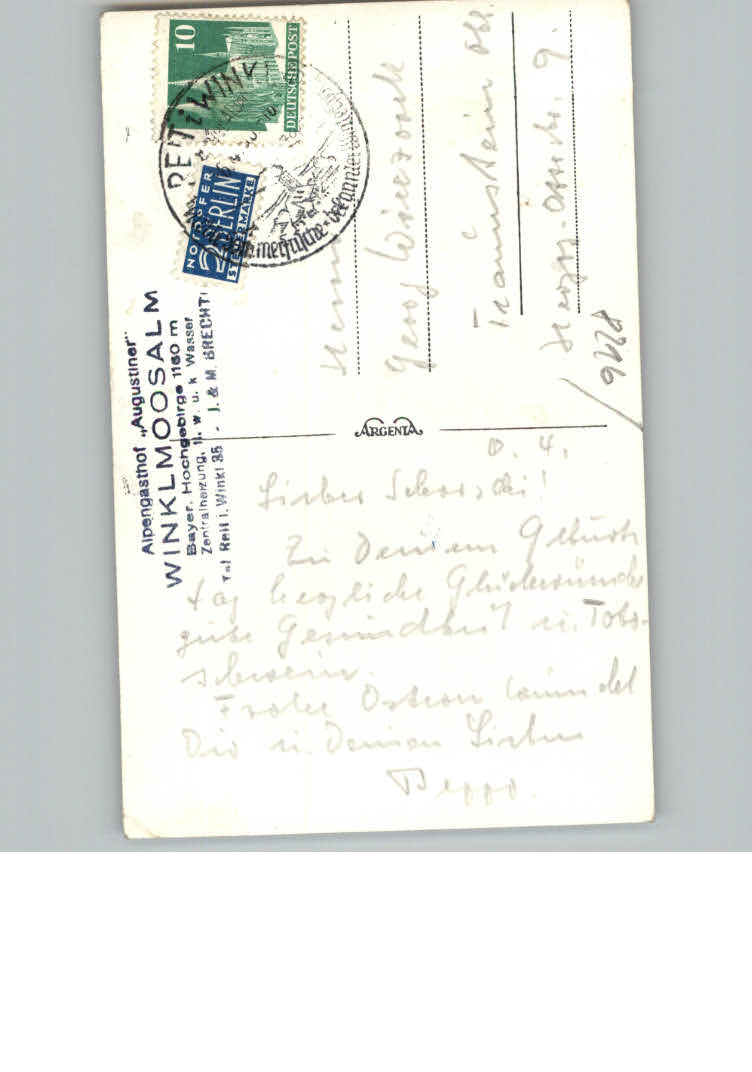 10
DEUTSCHE POST
REIT i WINKL
NOTOPFER
2 BERLIN
STEUERMARKE
Alpengasthof „Augustiner"
WINKLMOOSALM
Bayer. Hochgebirge 1160 m
Zentralheizung, fl. w. u. k Wasser
Tel Reit i. Winkl 35 - J. & M. BRECHT
Herrn
Georg
Traunstein Obb.
Herzog- 9.
ARGENTA
4.
Lieber
Zu Deinem Geburts
tag herzliche Glückwünsche
gute Gesundheit u.
Frohe Ostern
Dir u. Deinen Lieben
Beppo.